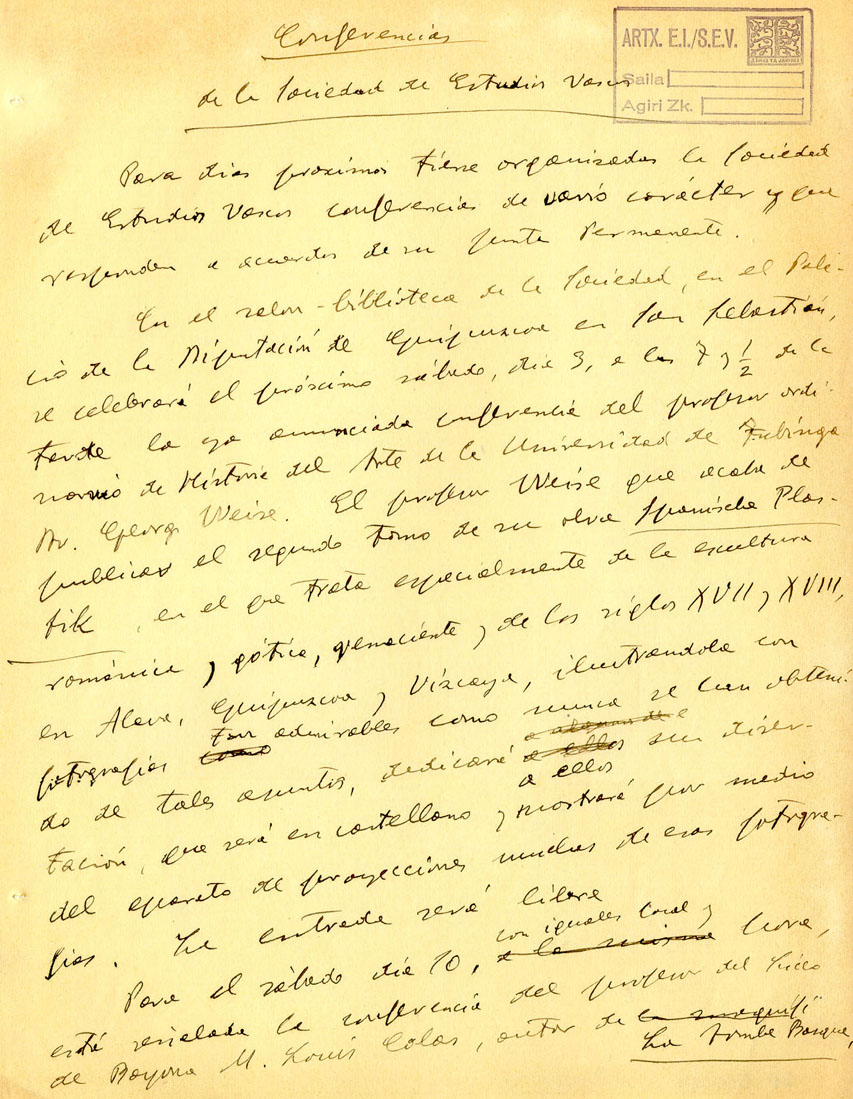 Conferencias
de la Sociedad de Estudios Vascos
ARTX. E.I./S.E.V.
Saila
Agiri Zk.
Para dias proximos tiene organizadas la Sociedad
de Estudios Vascos conferencias de vario carácter y que
responden a acuerdos de su Junta Permanente.
En el salon-biblioteca de la Sociedad, en el Pala-
cio de la Diputación de Guipuzcoa en San Sebastián,
se celebrará el próximo sábado, dia 3, a las 7 y 1/2 de la
tarde la ya anunciada conferencia del profesor ordi-
nario de Historia del Arte de la Universidad de Tubinga
Dr. Georg Weise. El profesor Weise que acaba de
publicar el segundo tomo de su obra Spanische Plas-
tik, en el que trata especialmente de la escultura
románica y gótica, renaciente y de los siglos XVII y XVIII,
en Alava, Guipuzcoa y Vizcaya, ilustrandola con
fotografias tan admirables como nunca se han obteni-
do de tales asuntos, dedicará a ellos su diser-
tación, que será en castellano y mostrará por medio
del aparato de proyecciones muchas de esas fotogra-
fias. La entrada será libre
Para el sábado dia 10, con iguales local y hora,
está señalada la conferencia del profesor del Liceo
de Bayona M. Louis Colas, autor de
La Tombe Basque,